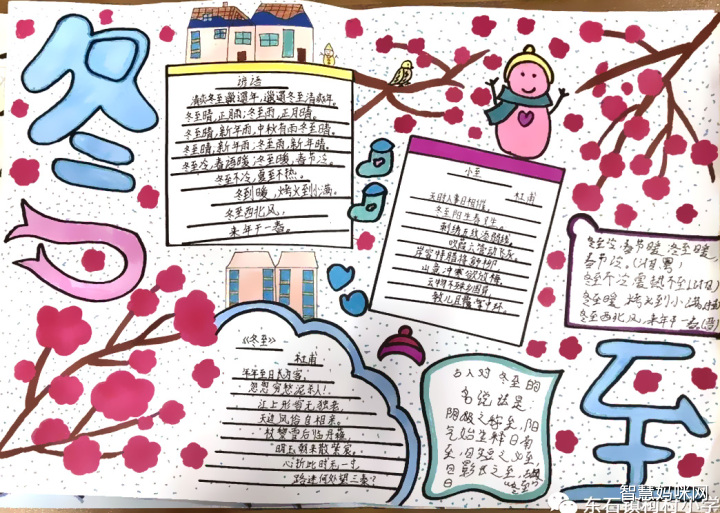 冬
至
谚语
清爽冬至邋遢年,邋遢冬至清爽年。
冬至晴,正月雨;冬至雨,正月晴。
冬至晴,新年雨,中秋有雨冬至晴。
冬至晴,新年雨,冬至雨,新年晴。
冬至冷,春节暖;冬至暖,春节冷。
冬至不冷,夏至不热。
冬至暖,烤火到小满。
冬至西北风,
来年干一春。
小至
杜甫
天时人事日相催,
冬至阳生春又生。
刺绣五纹添弱线,
吹葭六管动飞灰。
岸容待腊将舒柳,
山意冲寒欲放梅。
云物不殊乡国异,
教儿且覆掌中杯。
冬至冷,春节暖,冬至暖,
春节冷。
冬至不冷,夏热不至
冬至暖,烤火到小满
冬至西北风,来年干一春
《冬至》
杜甫
年年至日长为客,
忽忽穷愁泥杀人!
江上形容吾独老,
天边风俗自相亲。
杖藜雪后临丹壑,
鸣玉朝来散紫宸。
心折此时无一寸,
路迷何处望三秦?
古人对冬至的
说法是
阴极之至,阳
气始生,日南
至,日短之至
日影长之至,故
日“冬至”
智慧妈咪网
东石镇柯村小学